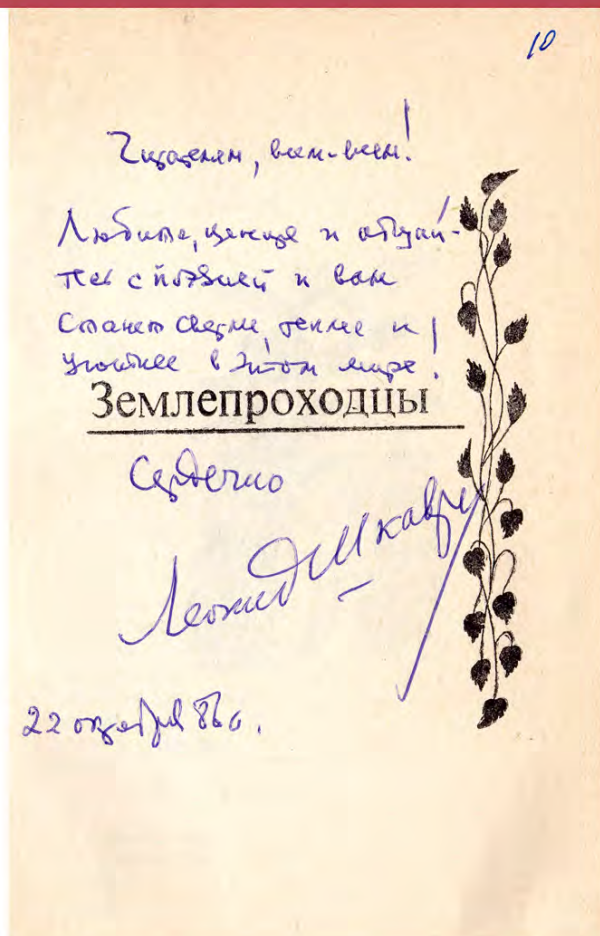 10
Читателям, всем-всем!
Любите, цените и общай-
тесь с поэзией и вам
станет светлее, теплее и
уютнее в этом мире!
Землепроходцы
Сердечно
Леонид Шкавро
22 октября 86 г.